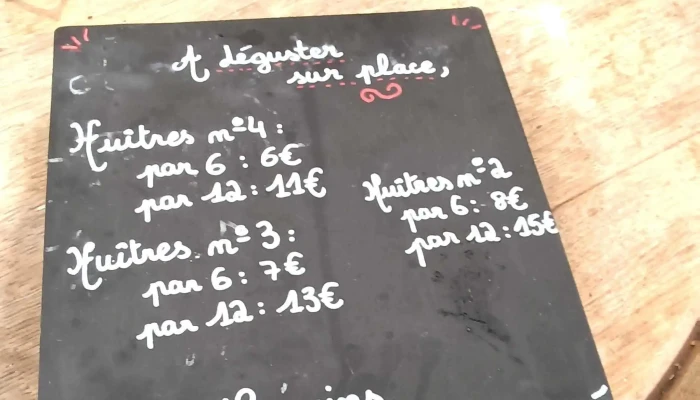 A déguster
sur place,
Huîtres nº4 :
par 6 : 6€
par 12 : 11€
Huîtres nº 3 :
par 6 : 7€
par 12 : 13€
Huîtres nº2
par 6 : 8€
par 12 : 15€